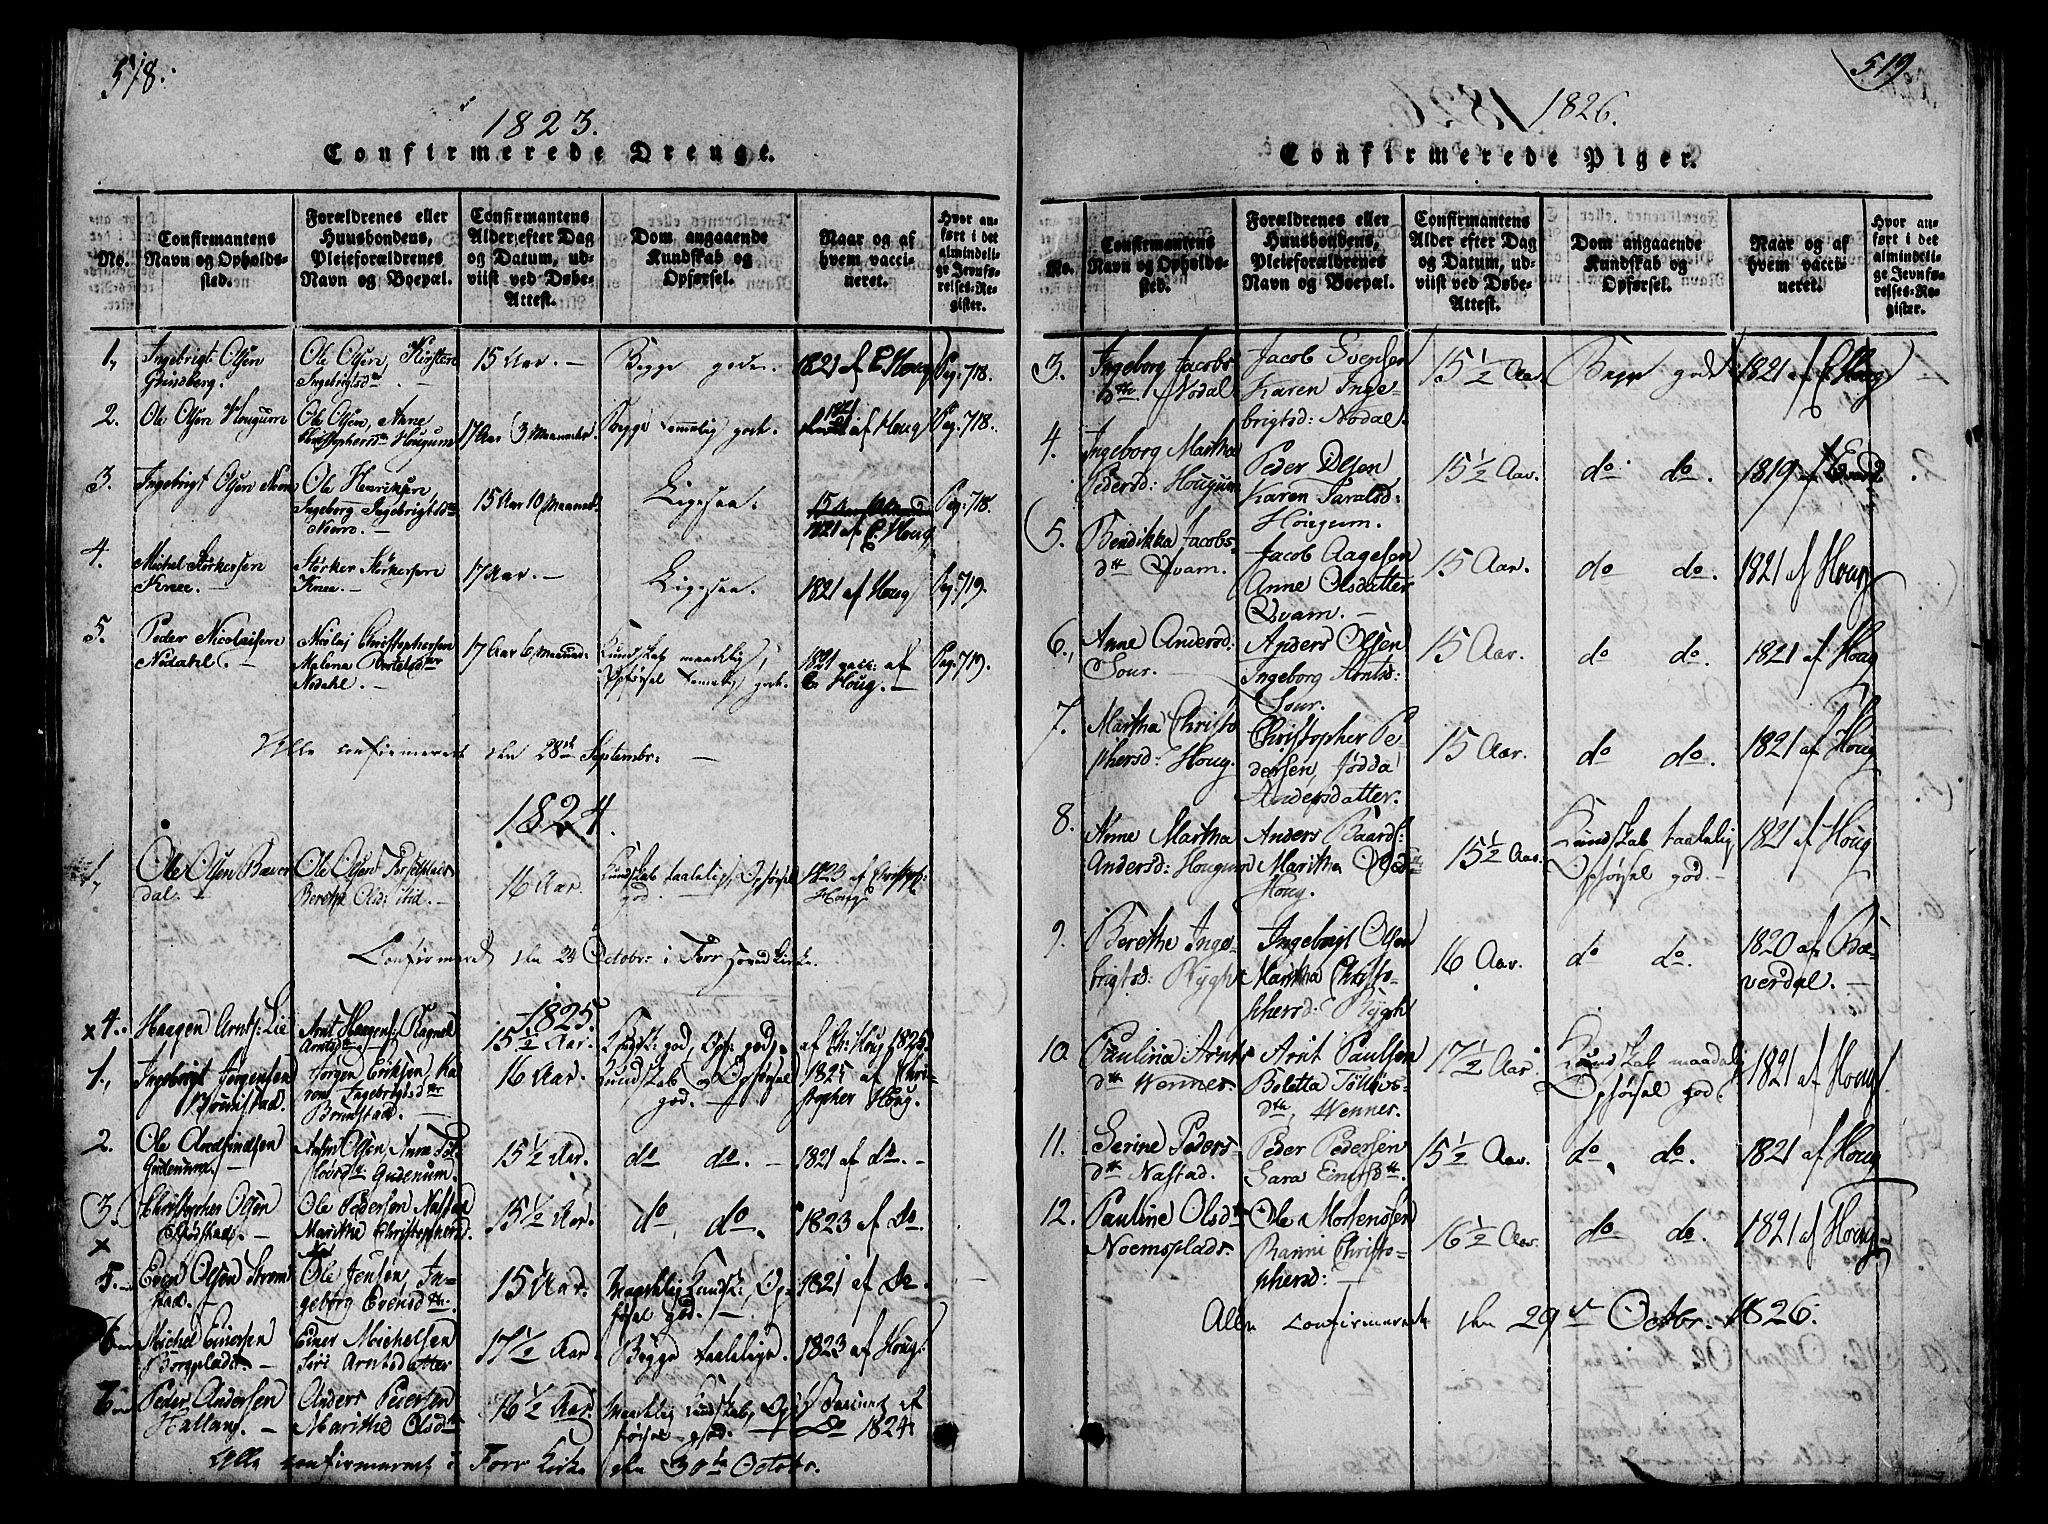 518.
1823.
Confirmerede Drenge.
No.
Confirmantens Navn og Opholdssted.
Forældrenes eller Huusbondens, Pleieforældrenes Navn og Boepæl.
Confirmantens Alder efter Dag og Datum, udviist ved Døbe-Attest.
Dom angaaende Kundskab og Opførsel.
Naar og af hvem vaccineret.
Hvor anført i det almindelige Jevnførelses-Register.
1,
Ingebrigt Olsen
Grindberg.
Ole Olsen, Kirsten
Ingebrigtsdr
15 Aar. —
Begge gode.
1821 af C. Houg
Pag. 718.
2.
Ole Olsen Hougum
Ole Olsen, Anne
Christophersdr Hougum
17 Aar 3 Maaneder.
Begge temmelig gode.
1821 af Houg
Pag. 718.
3.
Ingebrigt Olsen
Ole Henriksen,
Ingeborg Ingebrigtsdr
15 Aar 10 Maaned.
Ligesaa.
1821 af C. Houg
Pag: 718.
4.
Michel Størkersen
Knee. —
Størker Størkersen
Knee. —
17 Aar. —
Ligesaa.
1821 af Houg
Pag. 719.
5.
Peder Nicolaisen
Nødahl. —
Nicolaj Christophersen
Malena
Nodahl. —
17 Aar 6 Maaned.
Kundskab maadelig,
Opførsel temmelig god.
1821 vacc: af
C. Houg. —
Pag. 719.
Alle confirmerede den 28de Septembr:
1824.
1,
Ole Olsen Bæver
dal. —
Ole Olsen
Berethe Olsd: ibid. —
16 Aar.
Kundskab taalelig, Opførsel
god. —
1823 af Christoph:
Houg
Confirmeret den 24 Octobr: i Forr Hoved Kirke.
1825.
x 4.
Haagen Arnts: Lie
Arnt Haagens:
Arntsdr
15 1/2 Aar.
Kundsk: god, Opf: god,
af Ch: Houg 1825.
1.,
Ingebrigt Jørgensen
Brunstad.
Jørgen Eriksen, Ka
ren Ingebrigtsdr
Brunstad.
16 Aar.
Kundskab og Opførsel
god. —
1821 af Chri-
stopher Houg.
2.
Ole Andfindsen
Gudenum. —
Anfin Olsen, Anne Tol
lefsdr Gudenum. —
15 1/2 Aar.
do do. —
1821 af do. —
3.
x
Christopher Olsen
Ole Pedersen Nastad
Marithe Christophersd.
15 1/2 Aar.
do, do.
1823 af Do.
5.
Even Olsen Strøm
stad. —
Ole Jensen, In-
geborg Evensdtr.
15 Aar.
Maadelig Kundsk:, Op-
førsel god. —
1821 af Do.
6
Michel Einersen
Borgpladst —
Einer Michelsen
Siri Arntsdatter
17 1/2 Aar.
Begge taalelige.
1823 af Houg.
7
Peder Andersen
Hallang. —
Anders Pedersen
Marithe Olsdtr
16 1/2 Aar.
Maadelig Kundskab, Op-
førsel god. —
Do 1824:
Alle confirmeret i Forr Kirke den 30te Octobr.
519
1826.
Confirmerede Piger.
No.
Confirmantens Navn og Opholdssted.
Forældrenes eller Huusbondens, Pleieforældrenes Navn og Boepæl.
Confirmantens Alder efter Dag og Datum, udviist ved Døbe-Attest.
Dom angaaende Kundskab og Opførsel.
Naar og af hvem vaccineret.
Hvor anført i det almindelige Jevnførelses-Register.
3.
Ingeborg Jacobs
dtr Nødal.
Jacob Svensen
Karen Inge-
brigtsd: Nødal.
15 1/2 Aar.
Begge gode
1821 af C. Houg
4.
Ingeborg Martha
Pedersd: Hougum
Peder Olsen
Karen Taralsd:
Hougum.
15 1/2 Aar.
do do.
1819
5.
Bendikka Jacobs-
dtr Qvam.
Jacob Aagesen
Anne Olsdatter
Qvam. —
15 Aar.
do do.
1821 af Houg
6.,
Anne Andersd:
Sour. —
Anders Olsen
Ingeborg Arntsd:
Sour.
15 Aar.
do do.
1821 af Houg
7.
Martha Christo
phersd: Houg.
Christopher Pe-
dersen, Jødda
Andersdatter.
15 Aar.
do do.
1821 af Houg
8.
Anne Martha
Andersd: Hougum
Anders Baards:
Maritha Olsdtr
Houg.
15 1/2 Aar.
Kundskab taalelig
Opførsel god.
1821 af Houg
9.
Berethe Inge-
brigtsd: Rygh
Ingebrigt Olsen
Maritha Christo-
phersd: Rygh
16 Aar.
do do.
1820 af Bæ-
verdal. —
10.
Paulina Arnts
dtr Wennes.
Arnt Paulsen
Boletta Tollevs-
dtr, Wennes.
17 1/2 Aar.
Kundskab maadelig
Opførsel god.
1821 af Houg
11.
Serine Peders
dtr Nastad.
Peder Pedersen
Sara Einersdtr.
15 1/2 Aar.
do do.
1821 af Houg
12.
Pauline Olsdtr
Noemsplads.
Ole Mortensen
Ranni Christo-
phersd: —
16 1/2 Aar.
do do.
1821 af Houg
Alle confirmerede den 29de Octbr. 1826.